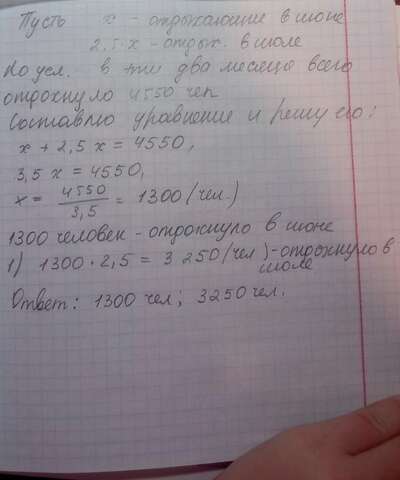 Пусть х - отдыхающие в июне
2,5·х - отдых. в июле
По усл. в эти два месяца всего
отдохнуло 4550 чел
Составлю уравнение и решу его:
х + 2,5 х = 4550,
3,5 х = 4550,
х = 4550/3,5 = 1300 (чел.)
1300 человек - отдохнуло в июне
1) 1300 · 2,5 = 3 250 (чел) - отдохнуло в
июле
Ответ: 1300 чел; 3250 чел.